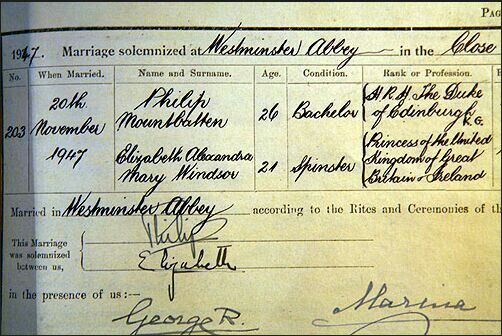 PAG
1947. Marriage solemnized at Westminster Abbey in the Close
No. When Married. Name and Surname. Age. Condition. Rank or Profession.
203 20th November 1947 Philip Mountbatten 26 Bachelor H.R.H. The Duke of Edinburgh K.G.
Elizabeth Alexandra Mary Windsor 21 Spinster Princess of the United Kingdom of Great Britain & Ireland
Married in Westminster Abbey according to the Rites and Ceremonies of th
This Marriage
was solemnized
between us,
Philip
Elizabeth
in the presence of us:—
George R.
Marina